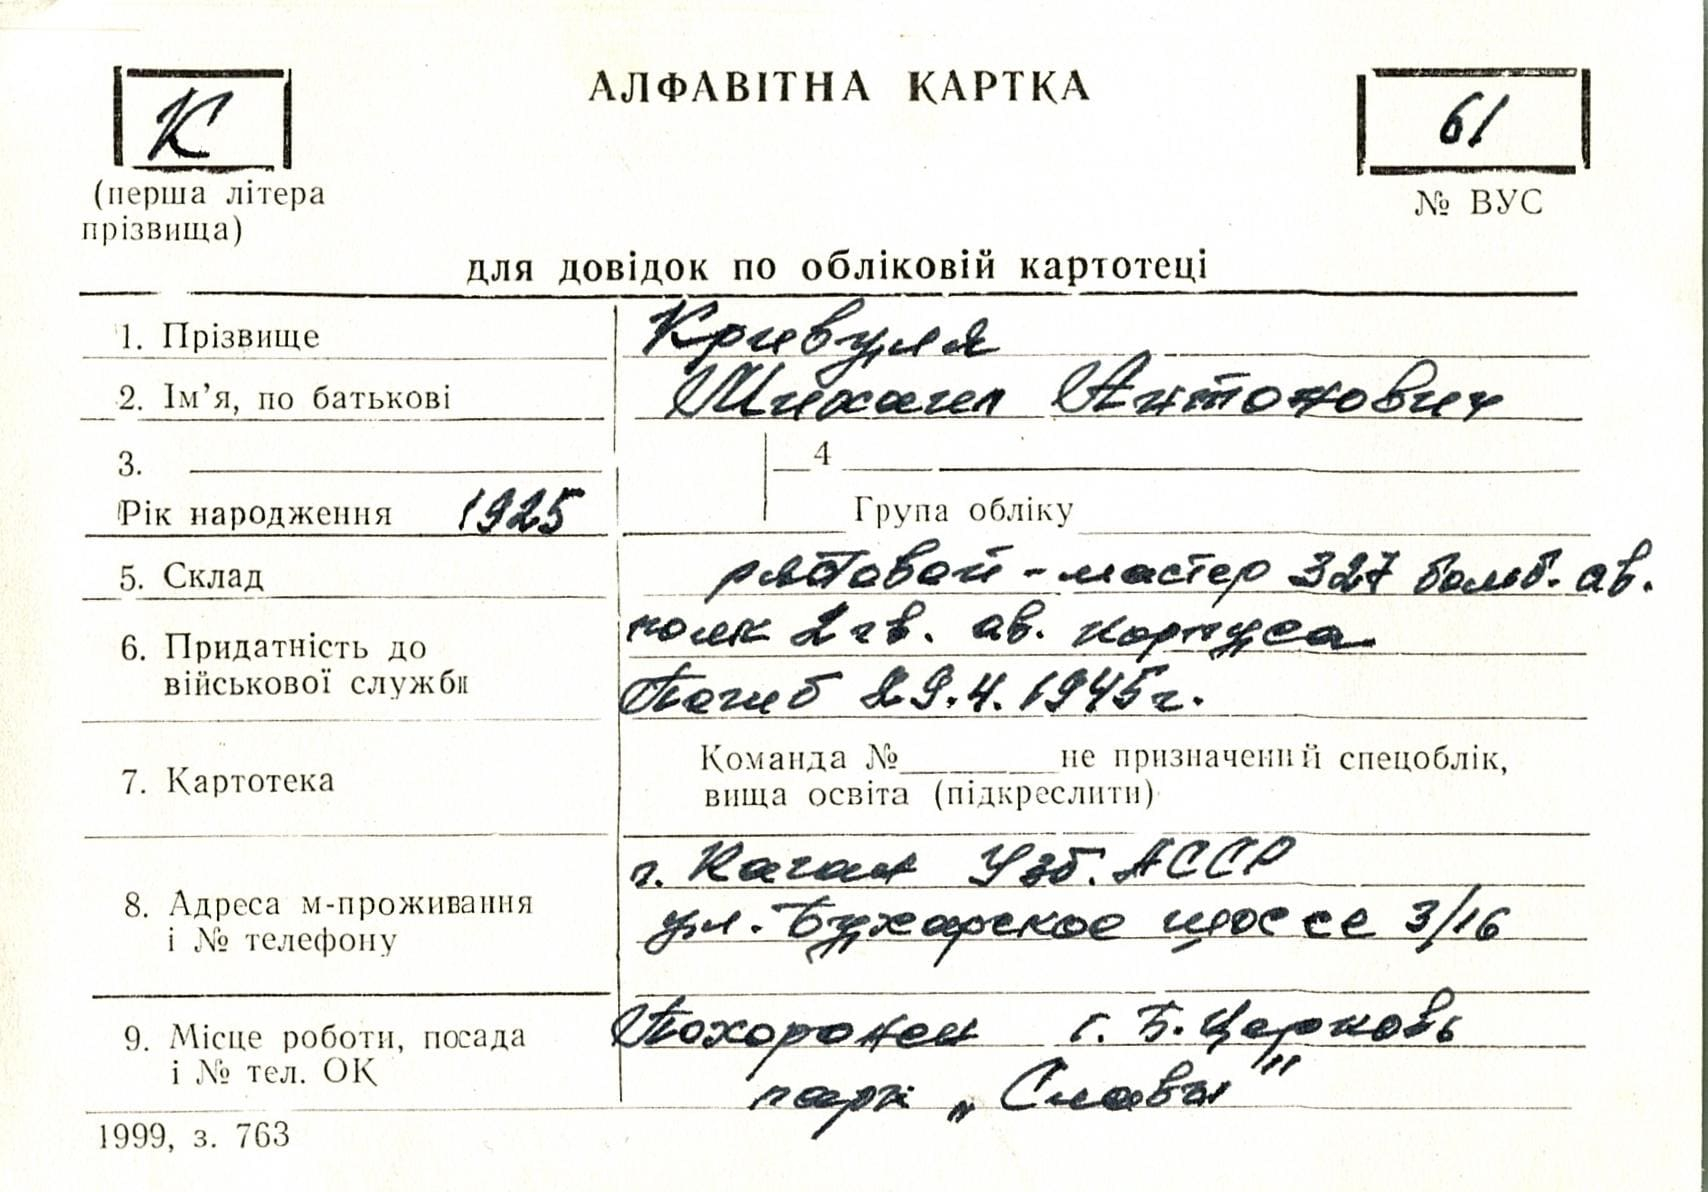 АЛФАВІТНА КАРТКА
К
61
(перша літера
прізвища)
№ ВУС
для довідок по обліковій картотеці
1. Прізвище Кривуля
2. Ім’я, по батькові Михаил Антонович
3. 4
Рік народження 1925 Група обліку
5. Склад рядовой - мастер 327 бомб. ав.
6. Придатність до полк 2 гв. ав. корпуса
військової служби Погиб 29.4.1945г.
7. Картотека Команда № не призначений спецоблік,
вища освіта (підкреслити)
г. Каган Узб. АССР
8. Адреса м-проживання ул. Бухарское шоссе 3/16
і № телефону
9. Місце роботи, посада Похоронен г. Б. Церковь
і № тел. ОК парк „Славы"
1999, з. 763